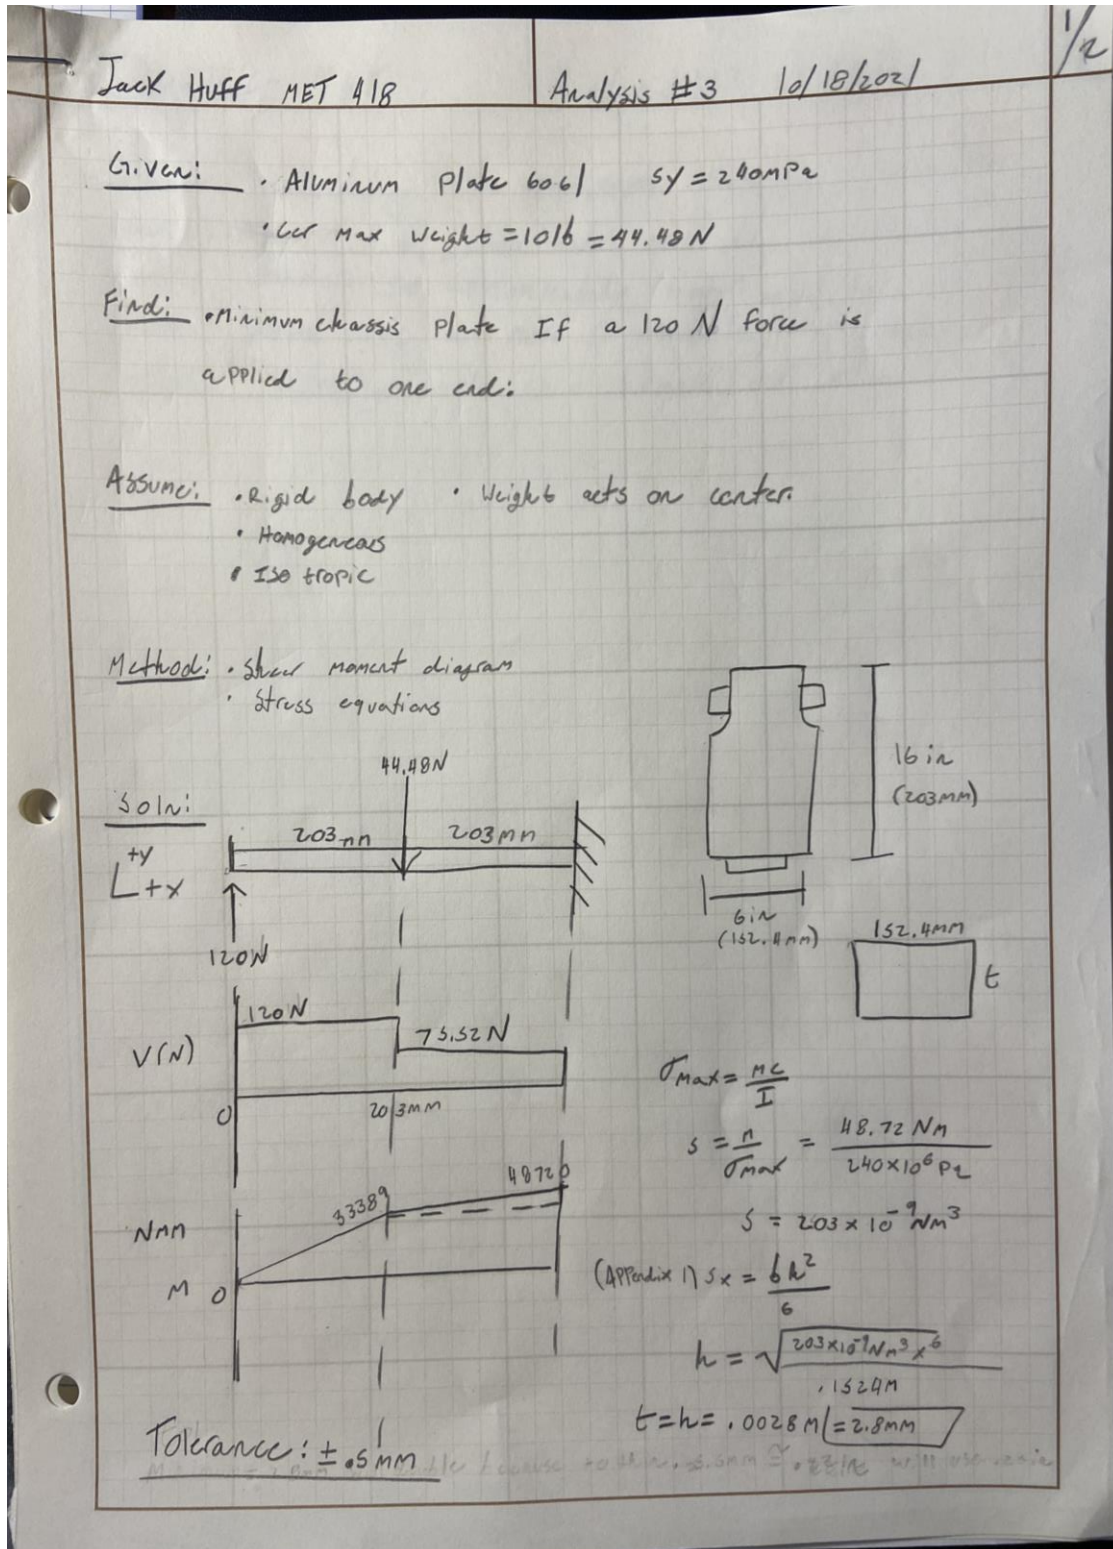 1/2
Jack Huff MET 418 Analysis #3 10/18/2021
Given: • Aluminum Plate 6061 Sy = 240MPa
• Car Max Weight = 10lb = 44.48N
Find: • Minimum chassis plate If a 120 N force is
applied to one end:
Assume: • Rigid body • Weight acts on center.
• Homogeneous
• Isotropic
Method: • Shear moment diagram
• Stress equations
16 in
(203mm)
6in
(152.4mm)
152.4mm
t
Soln:
+y
+x
44.48N
203mm 203mm
120N
120N
75.52N
V(N)
0
203mm
33389
48720
Nmm
M 0
σmax = MC/I
s = M/σmax = 48.72 Nm/240×10⁶ Pa
S = 203 × 10⁻⁹ Nm³
(Appendix 1) Sx = bh²/6
h = √203×10⁻⁹Nm³×6/.1524M
t=h= .0028M = 2.8mm
Tolerance: ± .5mm